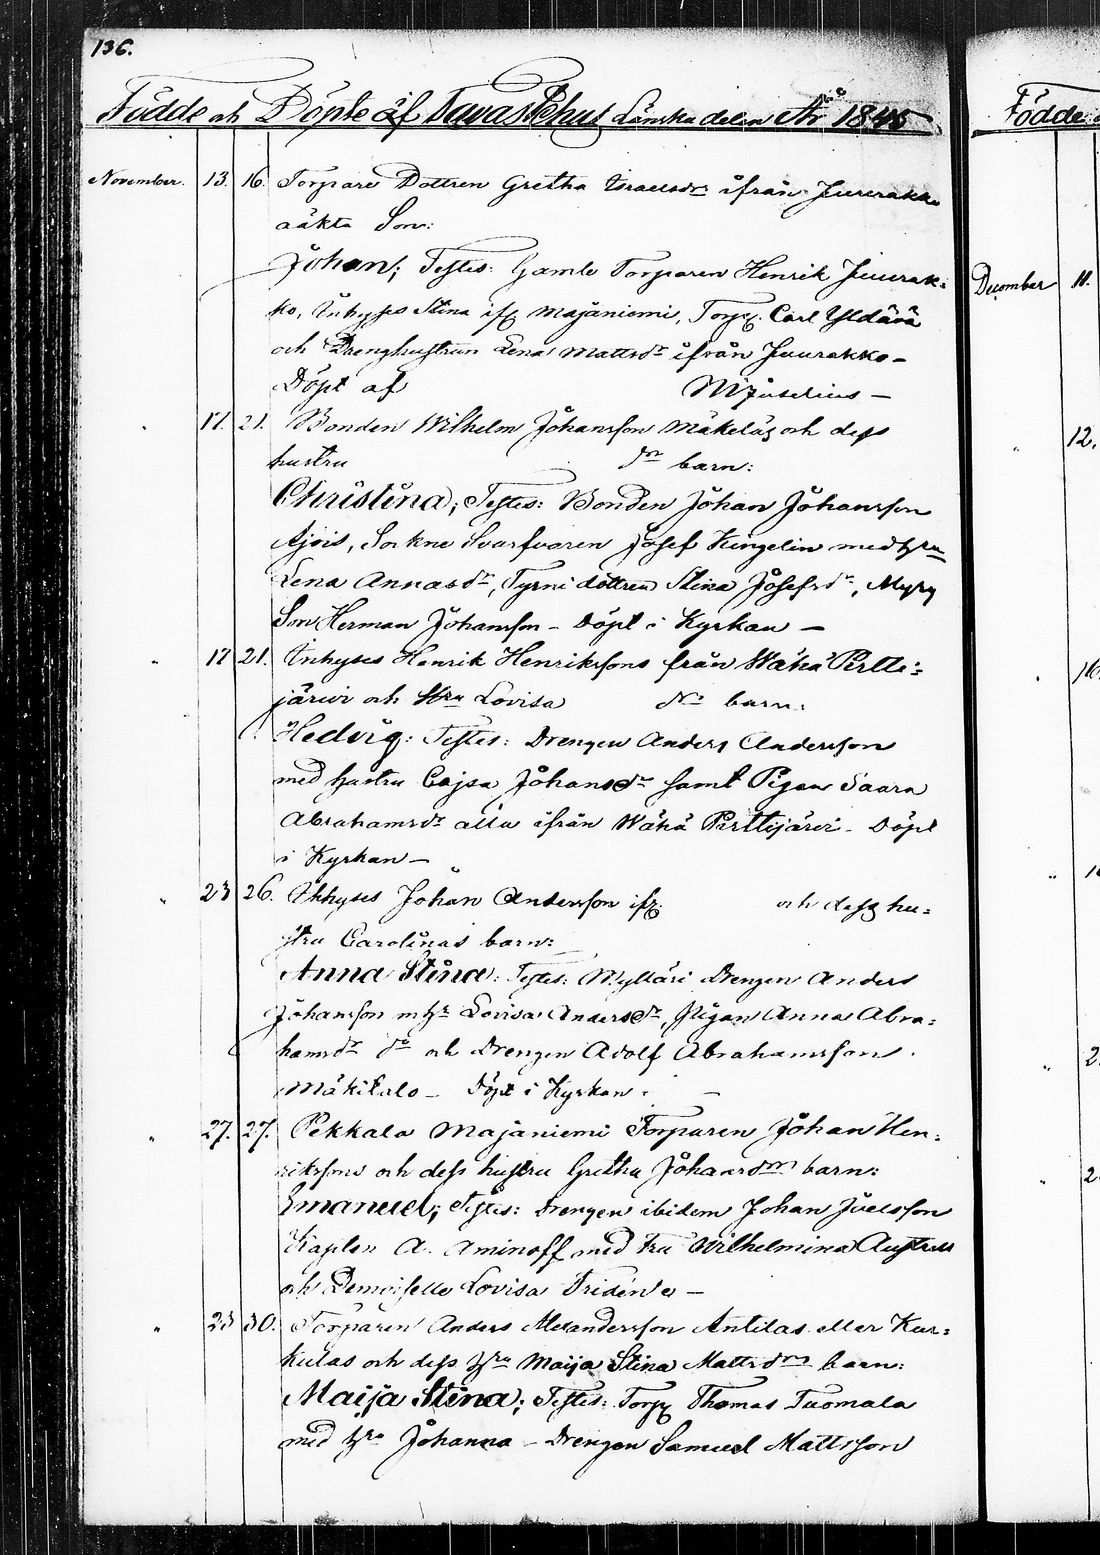 136.
Födde och Döpte af Tavastehus Länska delen År 1845
Födde
November. 13. 16. Torpare Dottren Gretha Israelsdr ifrån Juurakko
oäkta Son:
Johan; Testes: Gamle Torparen Henrik Juurak-
ko, Inhyses Stina ifr Majaniemi, Torp. Carl Yldävä
och Drenghustrun Lena Mattsdr ifrån Juurakko —
Döpt af
17. 21. Bonden Wilhelm Johansson Mäkeläs och dess
hustru dr barn:
Christina; Testes: Bonden Johan Johansson
Ajois, Sockne Svarfvaren Josef Kingelin med hru
Lena Annasdr, Tyrni dottren Stina Josefsdr, Myry
Son Herman Johansson — Döpt i Kyrkan —
" 17 21. Inhyses Henrik Henrikssons från Wäha Pertti-
järvi och Hru Lovisa dr barn:
Hedvig: Testes: Drengen Anders Andersson
med hustru Cajsa Johansdr samt Pigan Saara
Abrahamsdr alla ifrån Wähä Perttijärvi — Döpt
i Kyrkan —
" 23 26. Inhyses Johan Andersson ifr. och dess hu-
stru Carolinas barn:
Anna Stina: Testes: Mylläri Drengen Anders
Johansson m hr Lovisa Andersdr, Pigan Anna Abra-
hamsdr do och Drengen Adolf Abrahamsson
Mäkitalo — Döpt i Kyrkan.
" 27. 27. Pekkala Majaniemi Torparen Johan Hen-
rikssons och dess hustru Gretha Johansdrs barn:
Emanuel; Testes: Drengen ibidem Johan Joelsson
Kaplan A. Aminoff med Fru Wilhelmina
och Demoiselle Lovisa —
" 23 30. Torparen Anders Alexandersson Antilas eller Kur-
kulas och dess hru Maija Stina Mattsdrs barn:
Maija Stina; Testes: Torp Thomas Tuomala
med hru Johanna — Drengen Samuel Mattsson
December 11.
" 12.